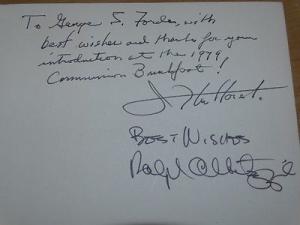 To George S. Forde, with
best wishes and thanks for your
introduction at the 1979
Communion Breakfast!
BEST WISHES
Ralph